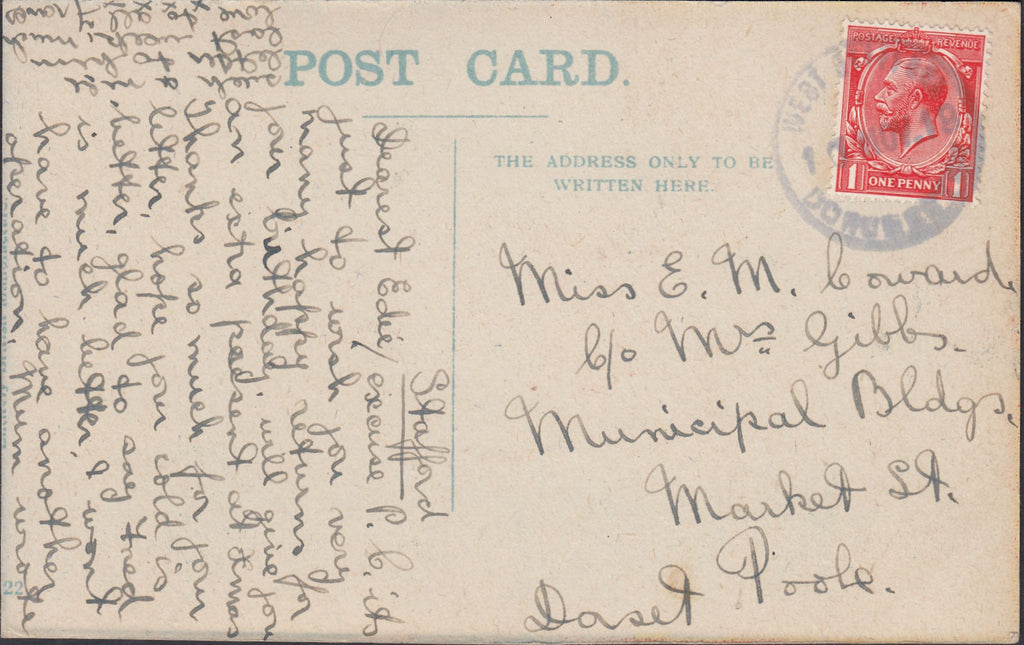 POST CARD.
THE ADDRESS ONLY TO BE
WRITTEN HERE.
POSTAGE REVENUE
1 ONE PENNY 1
Miss E. M. Coward.
c/o Mrs Gibbs.
Municipal Bldgs.
Market St.
Poole.
Dorset
Stafford
Dearest Edie, excuse P. C. its
just to wish you very
many happy returns for
your birthday will give you
an extra pasent at Xmas
Thanks so much for your
letter, hope your cold is
better, glad to say Fred
is much better & wont
have to have another
operation, Mum wrote
22